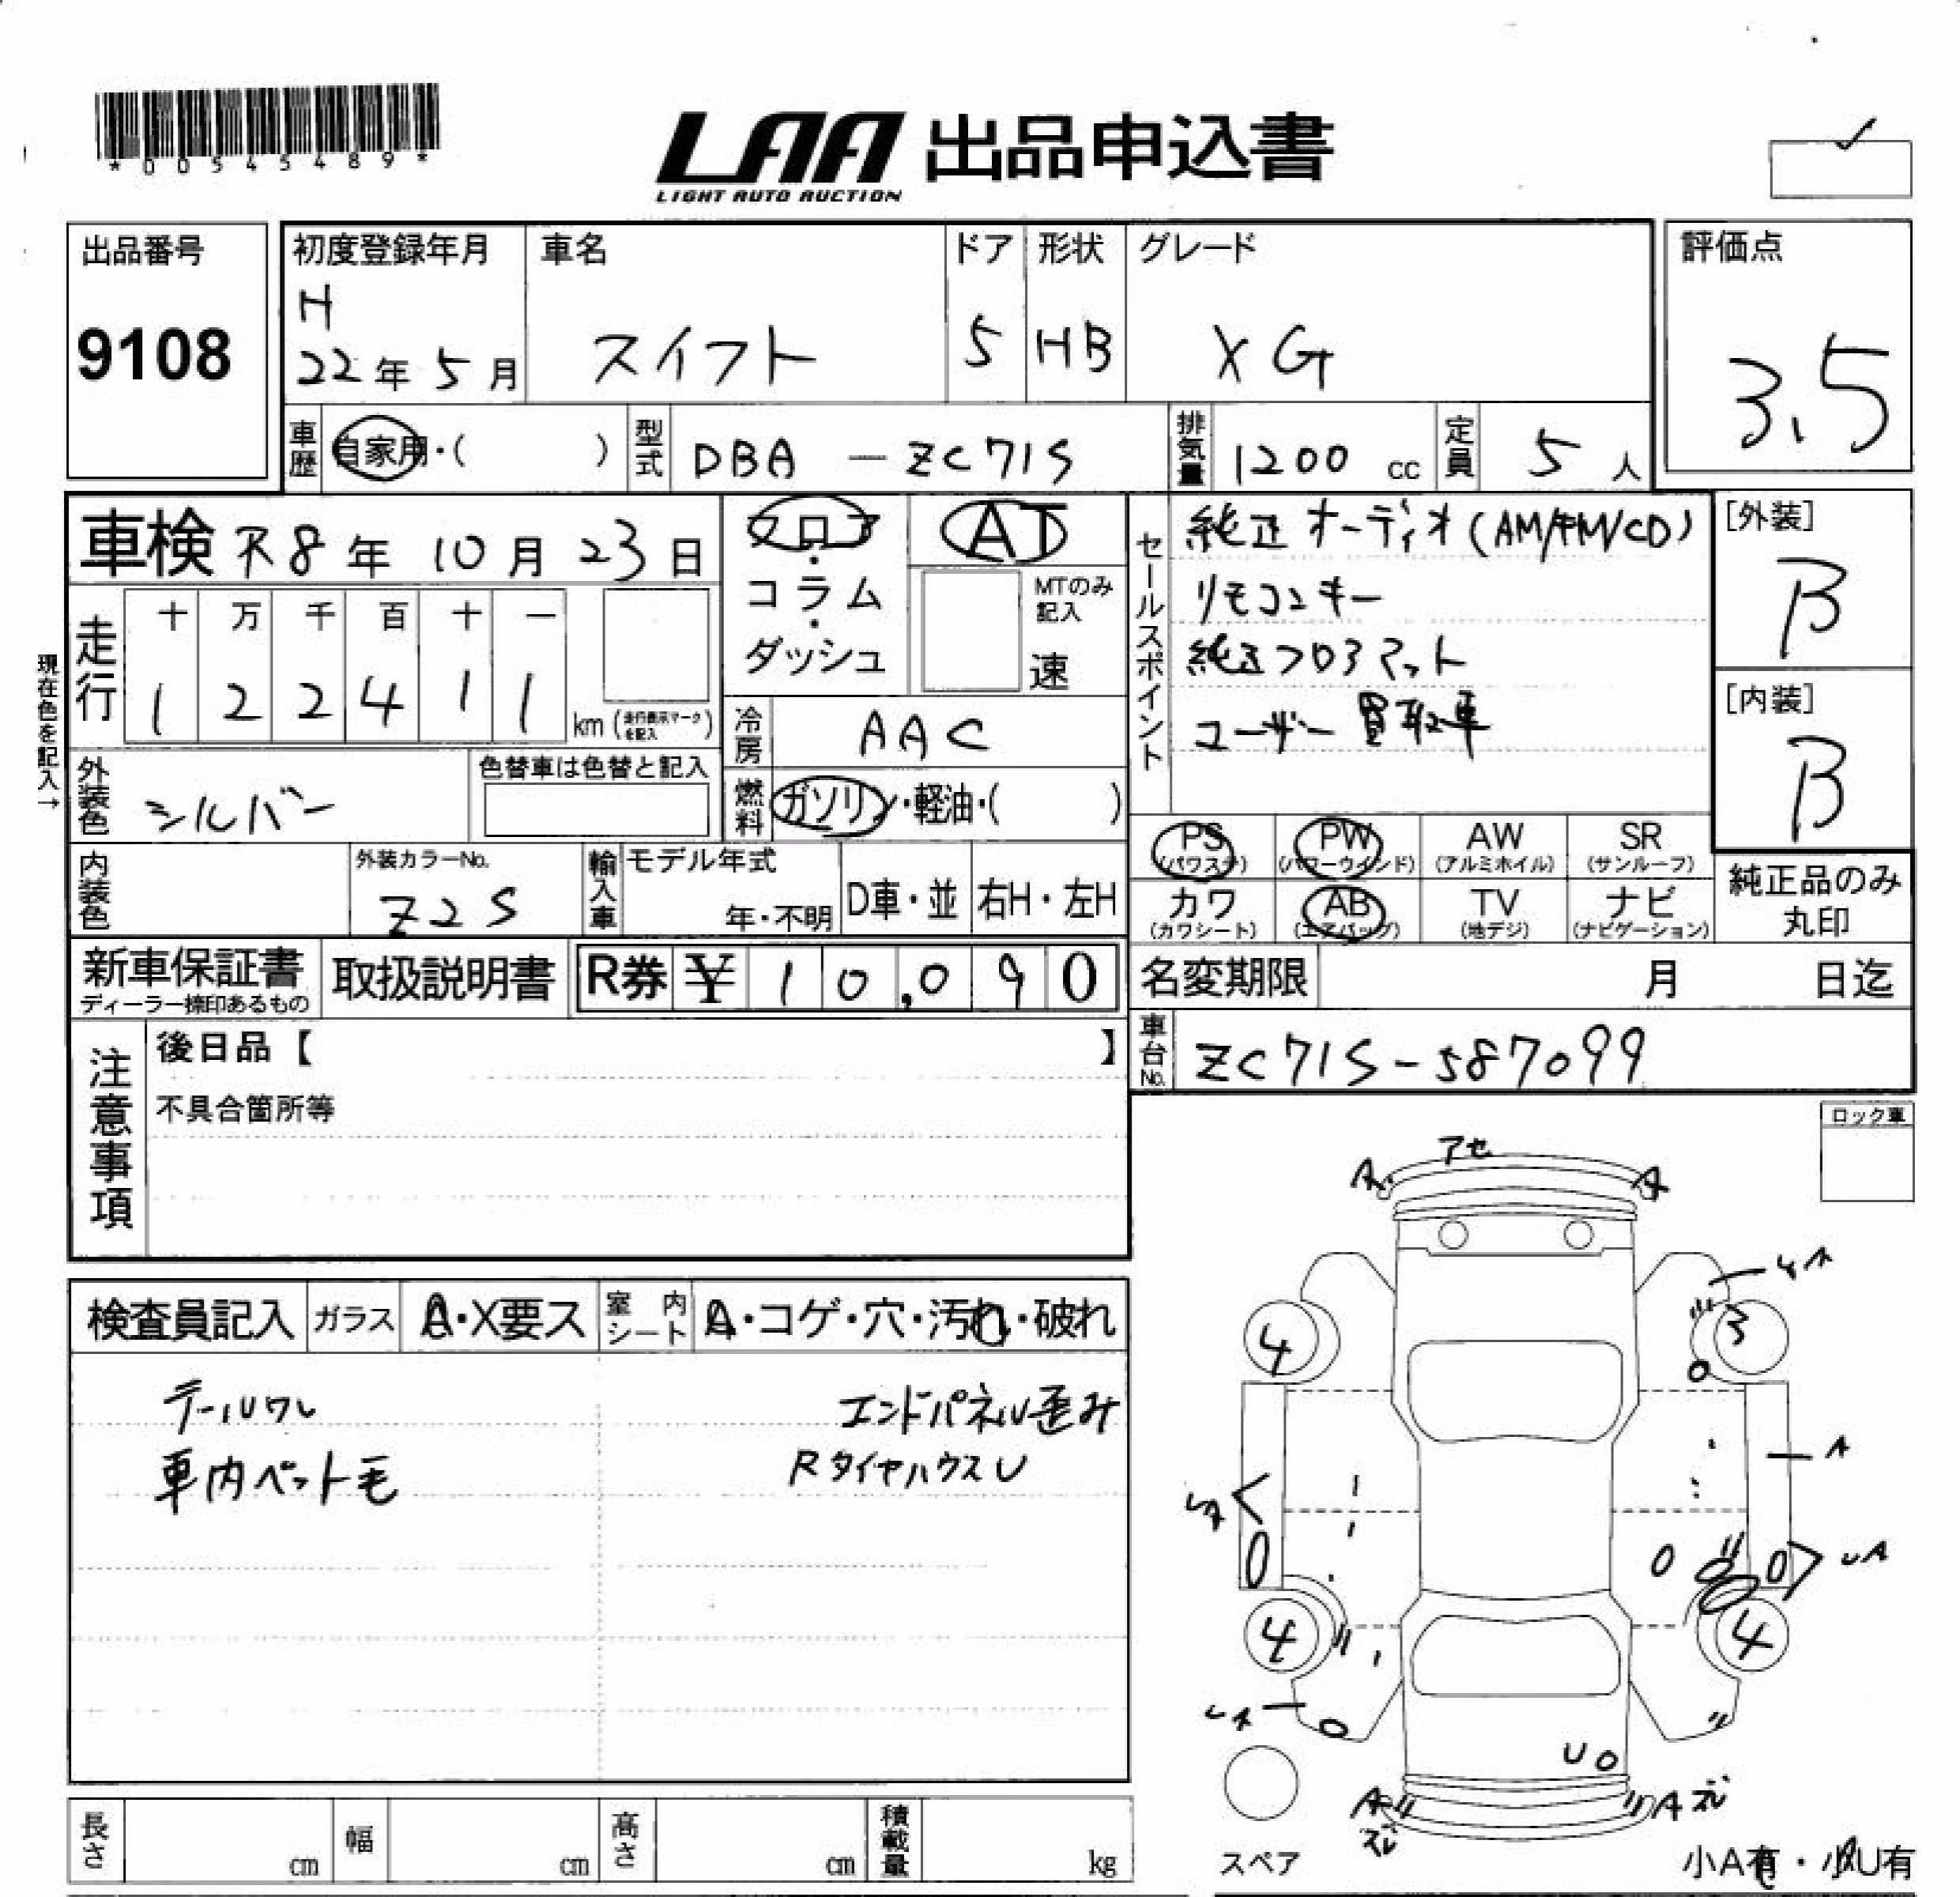 *00545489*
LAA 出品申込書
LIGHT AUTO AUCTION
出品番号
9108
初度登録年月
H
22年 5月
車名
スイフト
ドア
5
形状
HB
グレード
XG
評価点
3.5
車歴 自家用・( )
型式 DBA - ZC71S
排気量 1200 cc
定員 5 人
車検 R8年 10月 23日
フロア・コラム・ダッシュ
AT
MTのみ記入
速
セールスポイント
純正オーディオ(AM/FM/CD)
リモコンキー
純正フロアマット
ユーザー買取車
[外装]
B
[内装]
B
現在色を記入→
走行
十 万 千 百 十 一
1 2 2 4 1 1 km (走行表示マークを記入)
冷房 AAC
外装色 シルバー
色替車は色替と記入
燃料 ガソリン・軽油・( )
PS (パワステ)
PW (パワーウインド)
AW (アルミホイル)
SR (サンルーフ)
カワ (カワシート)
AB (エアバッグ)
TV (地デジ)
ナビ (ナビゲーション)
純正品のみ丸印
内装色
外装カラーNo.
Z2S
輸入車
モデル年式
年・不明
D車・並
右H・左H
新車保証書
ディーラー捺印あるもの
取扱説明書
R券 ¥ 10,090
名変期限 月 日迄
車台No. ZC71S-587099
注意事項
後日品【 】
不具合箇所等
ロック車
検査員記入
ガラス A・X要ス
室内シート A・コゲ・穴・汚れ・破れ
テールワレ
エンドパネル歪み
車内ペット毛
RタイヤハウスU
アセ
A A
4 3
A
UA
4 4
U
A ズレ
A ズレ
スペア
小A有・小U有
長さ cm
幅 cm
高さ cm
積載量 kg